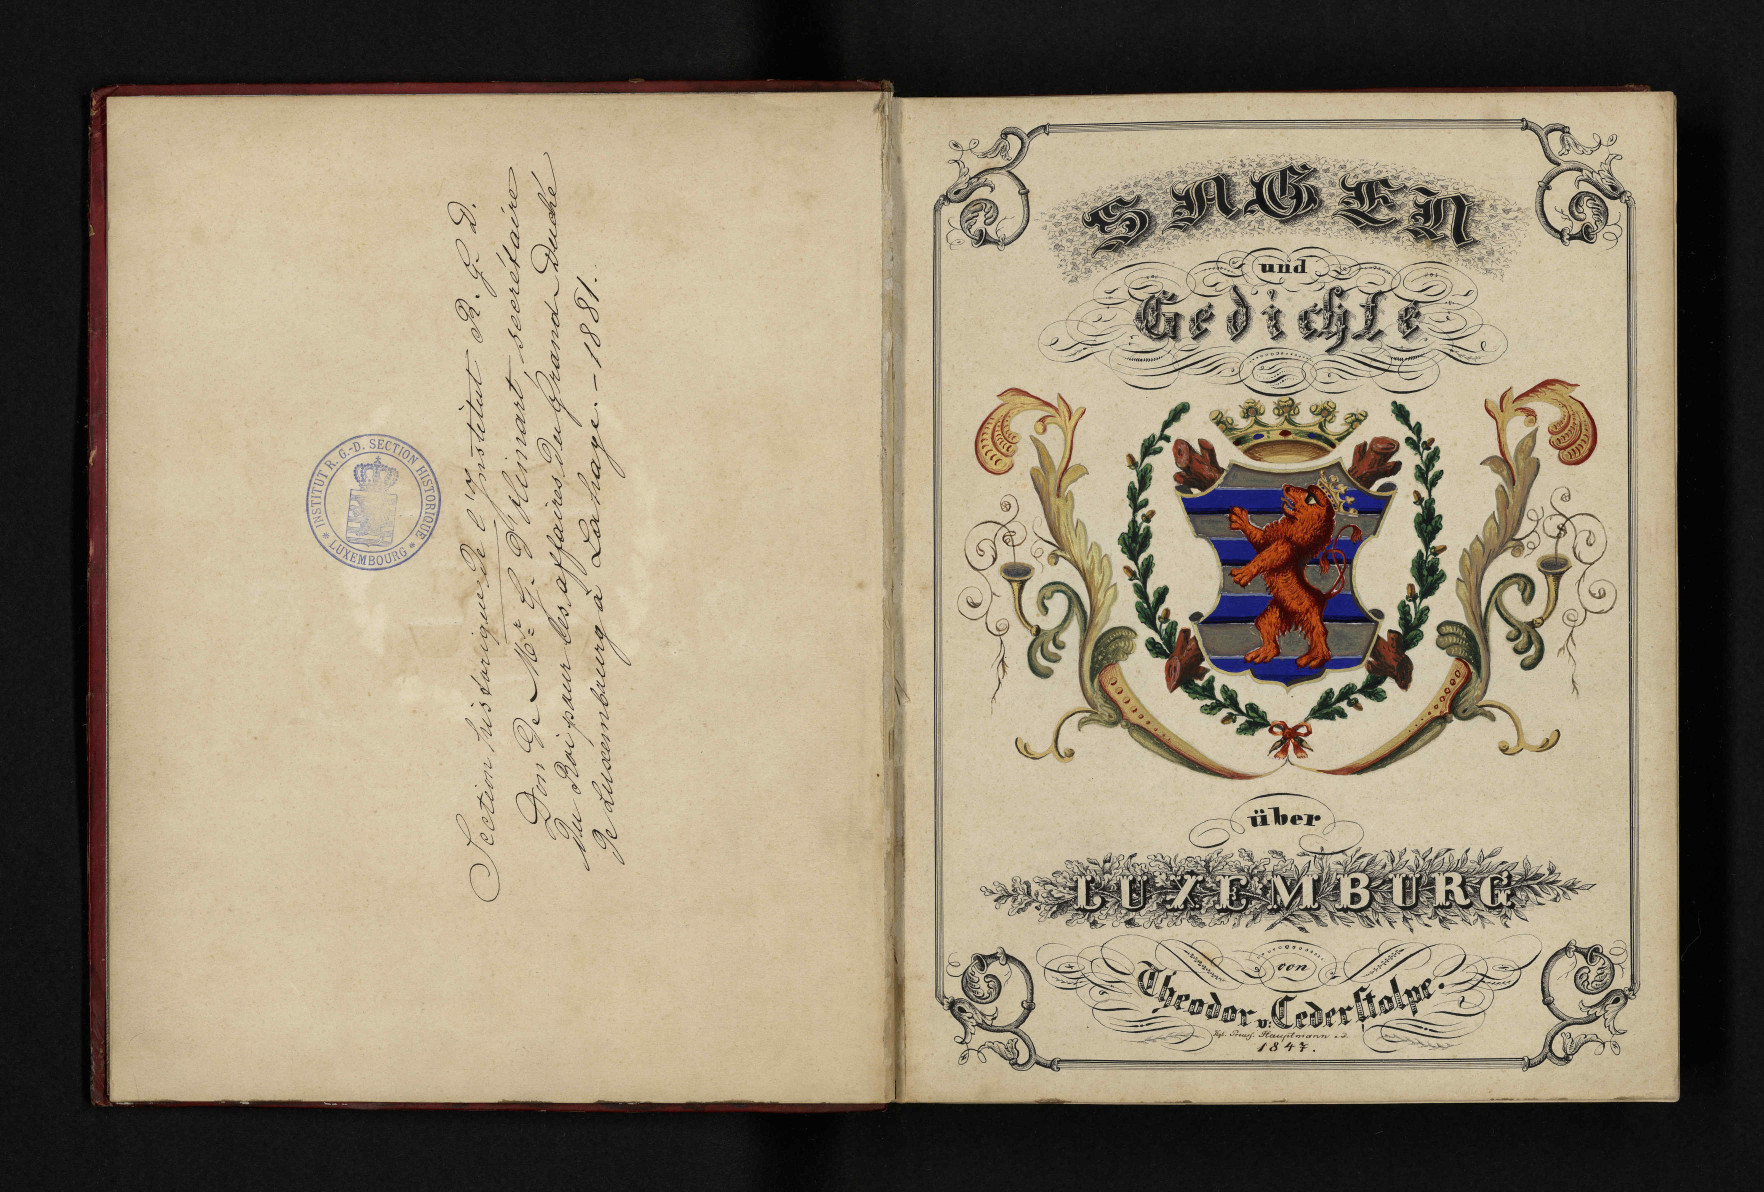 Section historique de l'Institut R. G. D.
Don de Mr G. d'Olimart, secrétaire
du Roi pour les affaires du Grand-Duché
de Luxembourg à Lahaye. – 1881.
INSTITUT R. G.-D. SECTION HISTORIQUE
* LUXEMBOURG *
SAGEN
und
Gedichte
über
LUXEMBURG
von
Theodor v: Cederstolpe.
Kgl. Preuß. Hauptmann a. d.
1847.